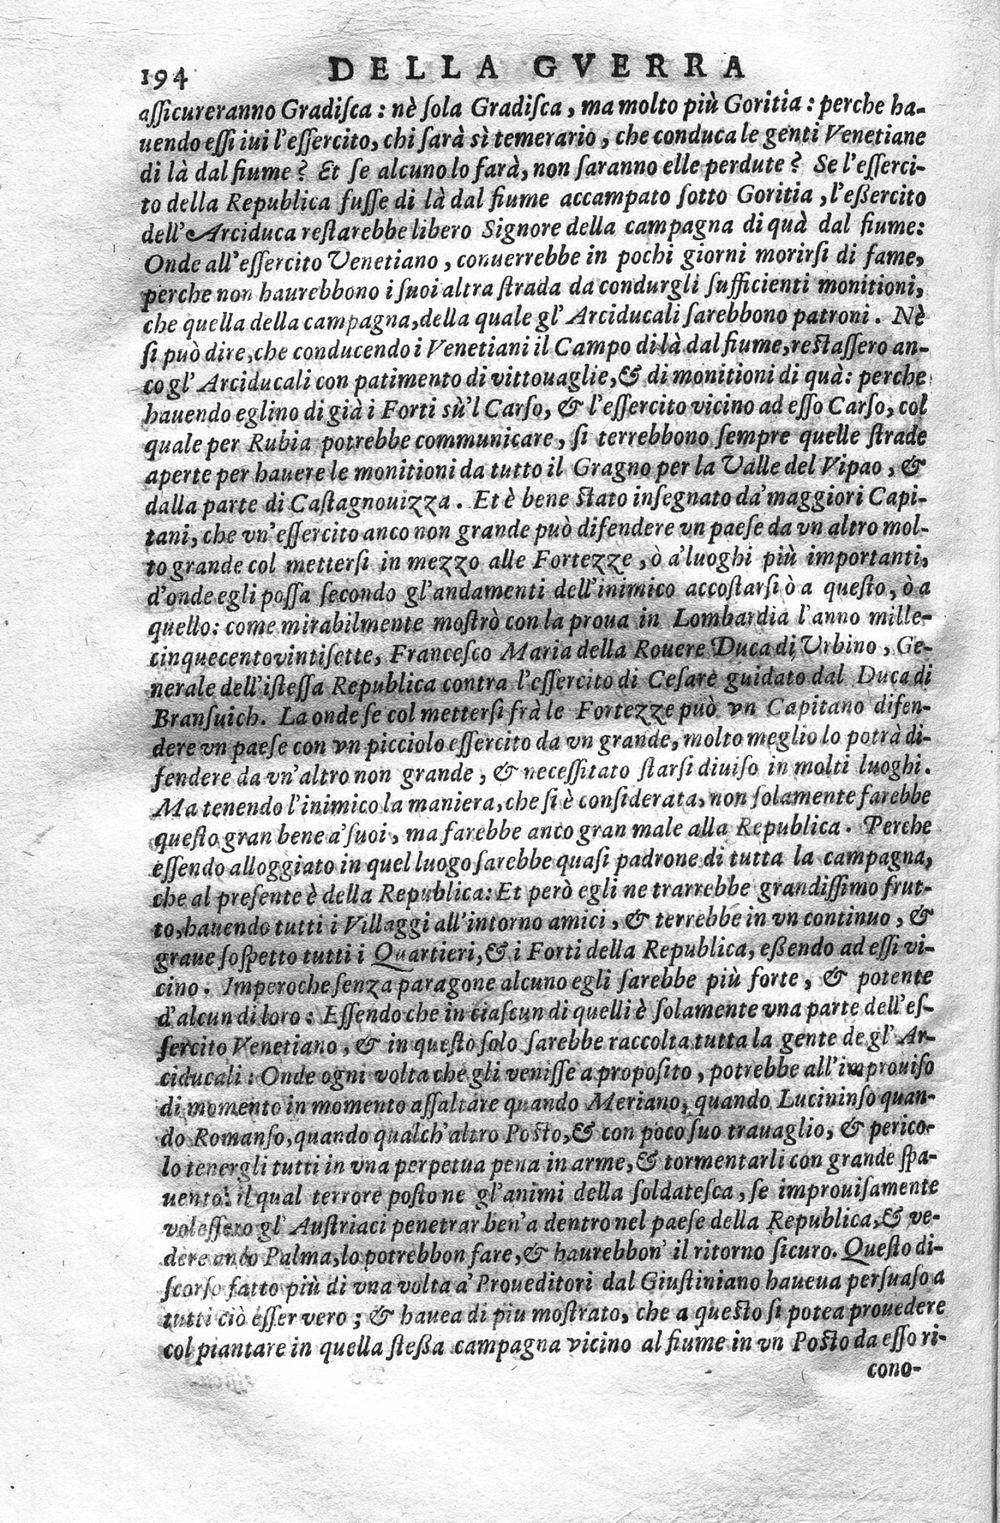 194 DELLA GVERRA
aſſicureranno Gradiſca: nè ſola Gradiſca, ma molto più Goritia: perche ha-
uendo eſſi iui l'eſſercito, chi ſarà sì temerario, che conduca le genti Venetiane
di là dal fiume? Et ſe alcuno lo farà, non ſaranno elle perdute? Se l'eſſerci-
to della Republica fuſſe di là dal fiume accampato ſotto Goritia, l'eßercito
dell'Arciduca reſtarebbe libero Signore della campagna di quà dal fiume:
Onde all'eſſercito Venetiano, conuerrebbe in pochi giorni morirſi di fame,
perche non haurebbono i ſuoi altra ſtrada da condurgli ſufficienti monitioni,
che quella della campagna, della quale gl'Arciducali ſarebbono patroni. Nè
ſi può dire, che conducendo i Venetiani il Campo di là dal fiume, reſtaſſero an-
co gl'Arciducali con patimento di vittouaglie, & di monitioni di quà: perche
hauendo eglino di già i Forti sù'l Carſo, & l'eſſercito vicino ad eſſo Carſo, col
quale per Rubia potrebbe communicare, ſi terrebbono ſempre quelle ſtrade
aperte per hauere le monitioni da tutto il Gragno per la Valle del Vipao, &
dalla parte di Caſtagnouizza. Et è bene ſtato inſegnato da'maggiori Capi-
tani, che vn'eſſercito anco non grande può difendere vn paeſe da vn altro mol-
to grande col metterſi in mezzo alle Fortezze, ò a'luoghi più importanti,
d'onde egli poſſa ſecondo gl'andamenti dell'inimico accoſtarſi ò a queſto, ò a
quello: come mirabilmente moſtrò con la proua in Lombardia l'anno mille-
cinquecentovintiſette, Franceſco Maria della Rouere Duca di Vrbino, Ge-
nerale dell'iſteſſa Republica contra l'eſſercito di Ceſare guidato dal Duca di
Branſuich. La onde ſe col metterſi frà le Fortezze può vn Capitano difen-
dere vn paeſe con vn picciolo eſſercito da vn grande, molto meglio lo potrà di-
fendere da vn'altro non grande, & neceſſitato ſtarſi diuiſo in molti luoghi.
Ma tenendo l'inimico la maniera, che ſi è conſiderata, non ſolamente farebbe
queſto gran bene a'ſuoi, ma farebbe anco gran male alla Republica. Perche
eſſendo alloggiato in quel luogo ſarebbe quaſi padrone di tutta la campagna,
che al preſente è della Republica: Et però egli ne trarrebbe grandiſſimo frut-
to, hauendo tutti i Villaggi all'intorno amici, & terrebbe in vn continuo, &
graue ſoſpetto tutti i Quartieri, & i Forti della Republica, eßendo ad eſſi vi-
cino. Imperoche ſenza paragone alcuno egli ſarebbe più forte, & potente
d'alcun di loro: Eſſendo che in ciaſcun di quelli è ſolamente vna parte dell'eſ-
ſercito Venetiano, & in queſto ſolo ſarebbe raccolta tutta la gente de gl'Ar-
ciducali: Onde ogni volta che gli veniſſe a propoſito, potrebbe all'improuiſo
di momento in momento aſſaltare quando Meriano, quando Lucininſo quan-
do Romanſo, quando qualch'altro Poſto, & con poco ſuo trauaglio, & perico-
lo tenergli tutti in vna perpetua pena in arme, & tormentarli con grande ſpa-
uento: il qual terrore poſto ne gl'animi della ſoldateſca, ſe improuiſamente
voleſſero gl'Auſtriaci penetrar ben'a dentro nel paeſe della Republica, & ve-
dere anco Palma, lo potrebbon fare, & haurebbon' il ritorno ſicuro. Queſto di-
ſcorſo fatto più di vna volta a'Proueditori dal Giuſtiniano haueua perſuaſo a
tutti ciò eſſer vero; & hauea di piu moſtrato, che a queſto ſi potea prouedere
col piantare in quella ſteßa campagna vicino al fiume in vn Poſto da eſſo ri-
cono-